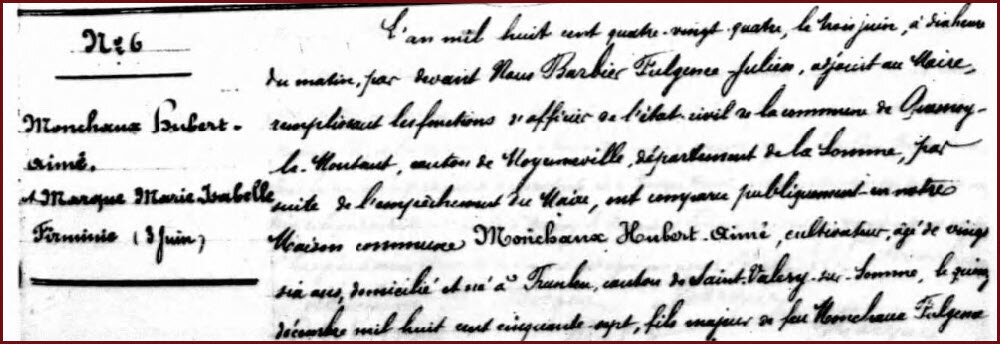 N° 6
Monchaux Hubert-
Aimé.
et Marque Marie-Isabelle
Firminie (3 Juin)
L'an mil huit cent quatre-vingt-quatre, le trois juin, à dix heures
du matin, par devant Nous Barbier Fulgence Julien, adjoint au Maire,
remplissant les fonctions d'officier de l'état-civil de la commune de Quesnoy-
le-Montant, canton de Moyenneville, département de la Somme, par
suite de l'empêchement du Maire, ont comparu publiquement en notre
Maison commune Monchaux Hubert-Aimé, cultivateur, âgé de vingt
six ans, domicilié et né à Franleu, canton de Saint-Valery-sur-Somme, le quinze
décembre mil huit cent cinquante sept, fils majeur de feu Monchaux Fulgence